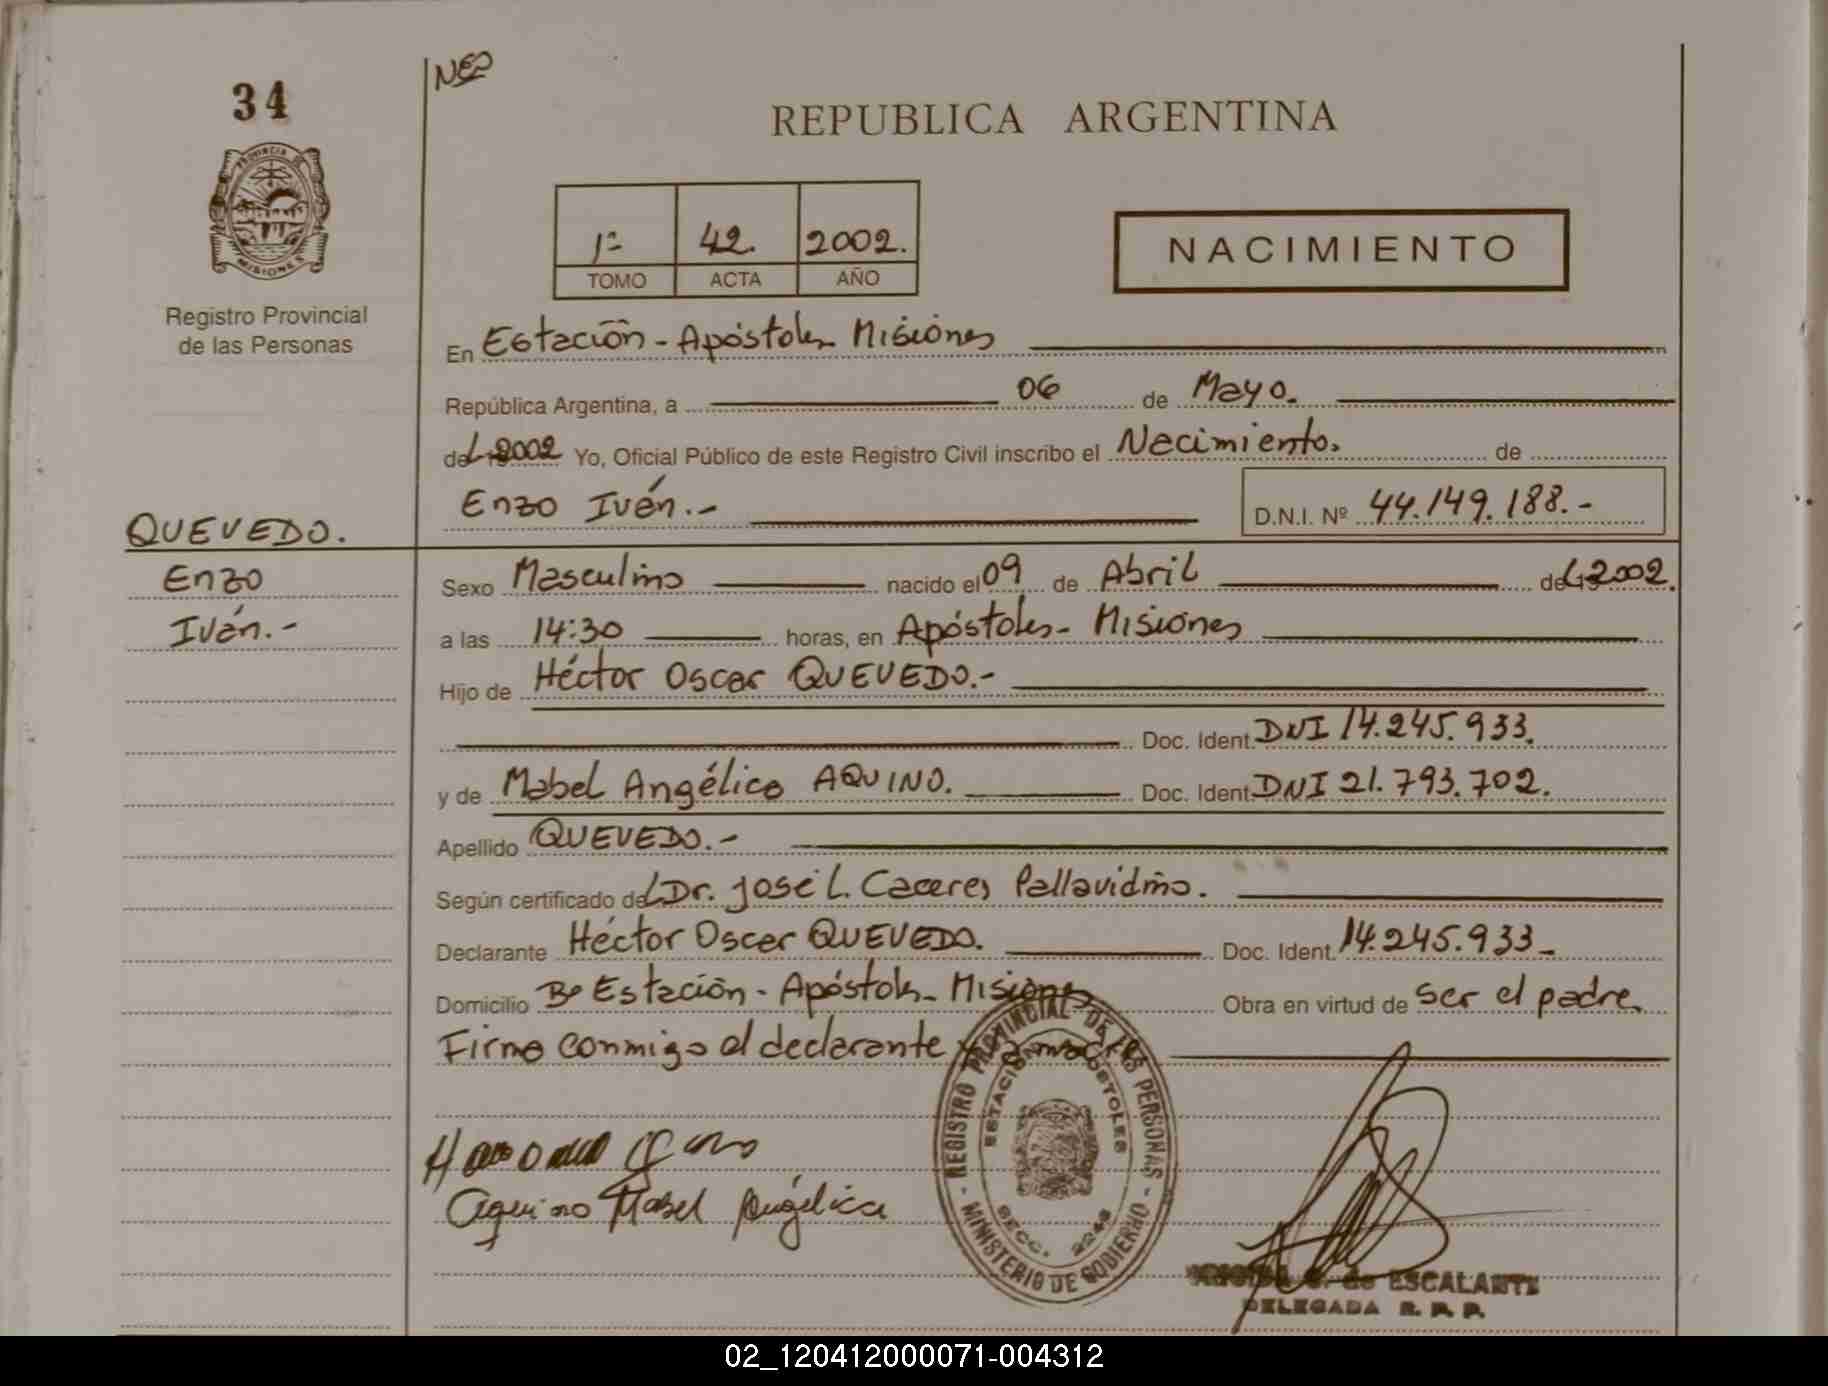 34
NEP
REPUBLICA ARGENTINA
PROVINCIA DE MISIONES
Registro Provincial
de las Personas
1º 42. 2002.
TOMO ACTA AÑO
NACIMIENTO
En Estación - Apóstoles Misiones
República Argentina, a 06 de Mayo.
del 2002 Yo, Oficial Público de este Registro Civil inscribo el Nacimiento. de
Enzo Iván.- D.N.I. Nº 44.149.188.-
QUEVEDO.
Enzo
Iván.-
Sexo Masculino nacido el 09 de Abril del 2002.
a las 14:30 horas, en Apóstoles - Misiones
Hijo de Héctor Oscar QUEVEDO.-
Doc. Ident. DNI 14.245.933.
y de Mabel Angélica AQUINO. Doc. Ident. DNI 21.793.702.
Apellido QUEVEDO.-
Según certificado del Dr. José L. Caceres Pallavidino.
Declarante Héctor Oscar QUEVEDO. Doc. Ident. 14.245.933-
Domicilio Bº Estación - Apóstoles - Misiones Obra en virtud de ser el padre
Firma conmigo el declarante y la madre
REGISTRO PROVINCIAL DE LAS PERSONAS - MINISTERIO DE GOBIERNO -
ESTACION APOSTOLES
SECC. 2248
Aquino Mabel Angélica
de ESCALANTE
DELEGADA R. P. P.
02_120412000071-004312